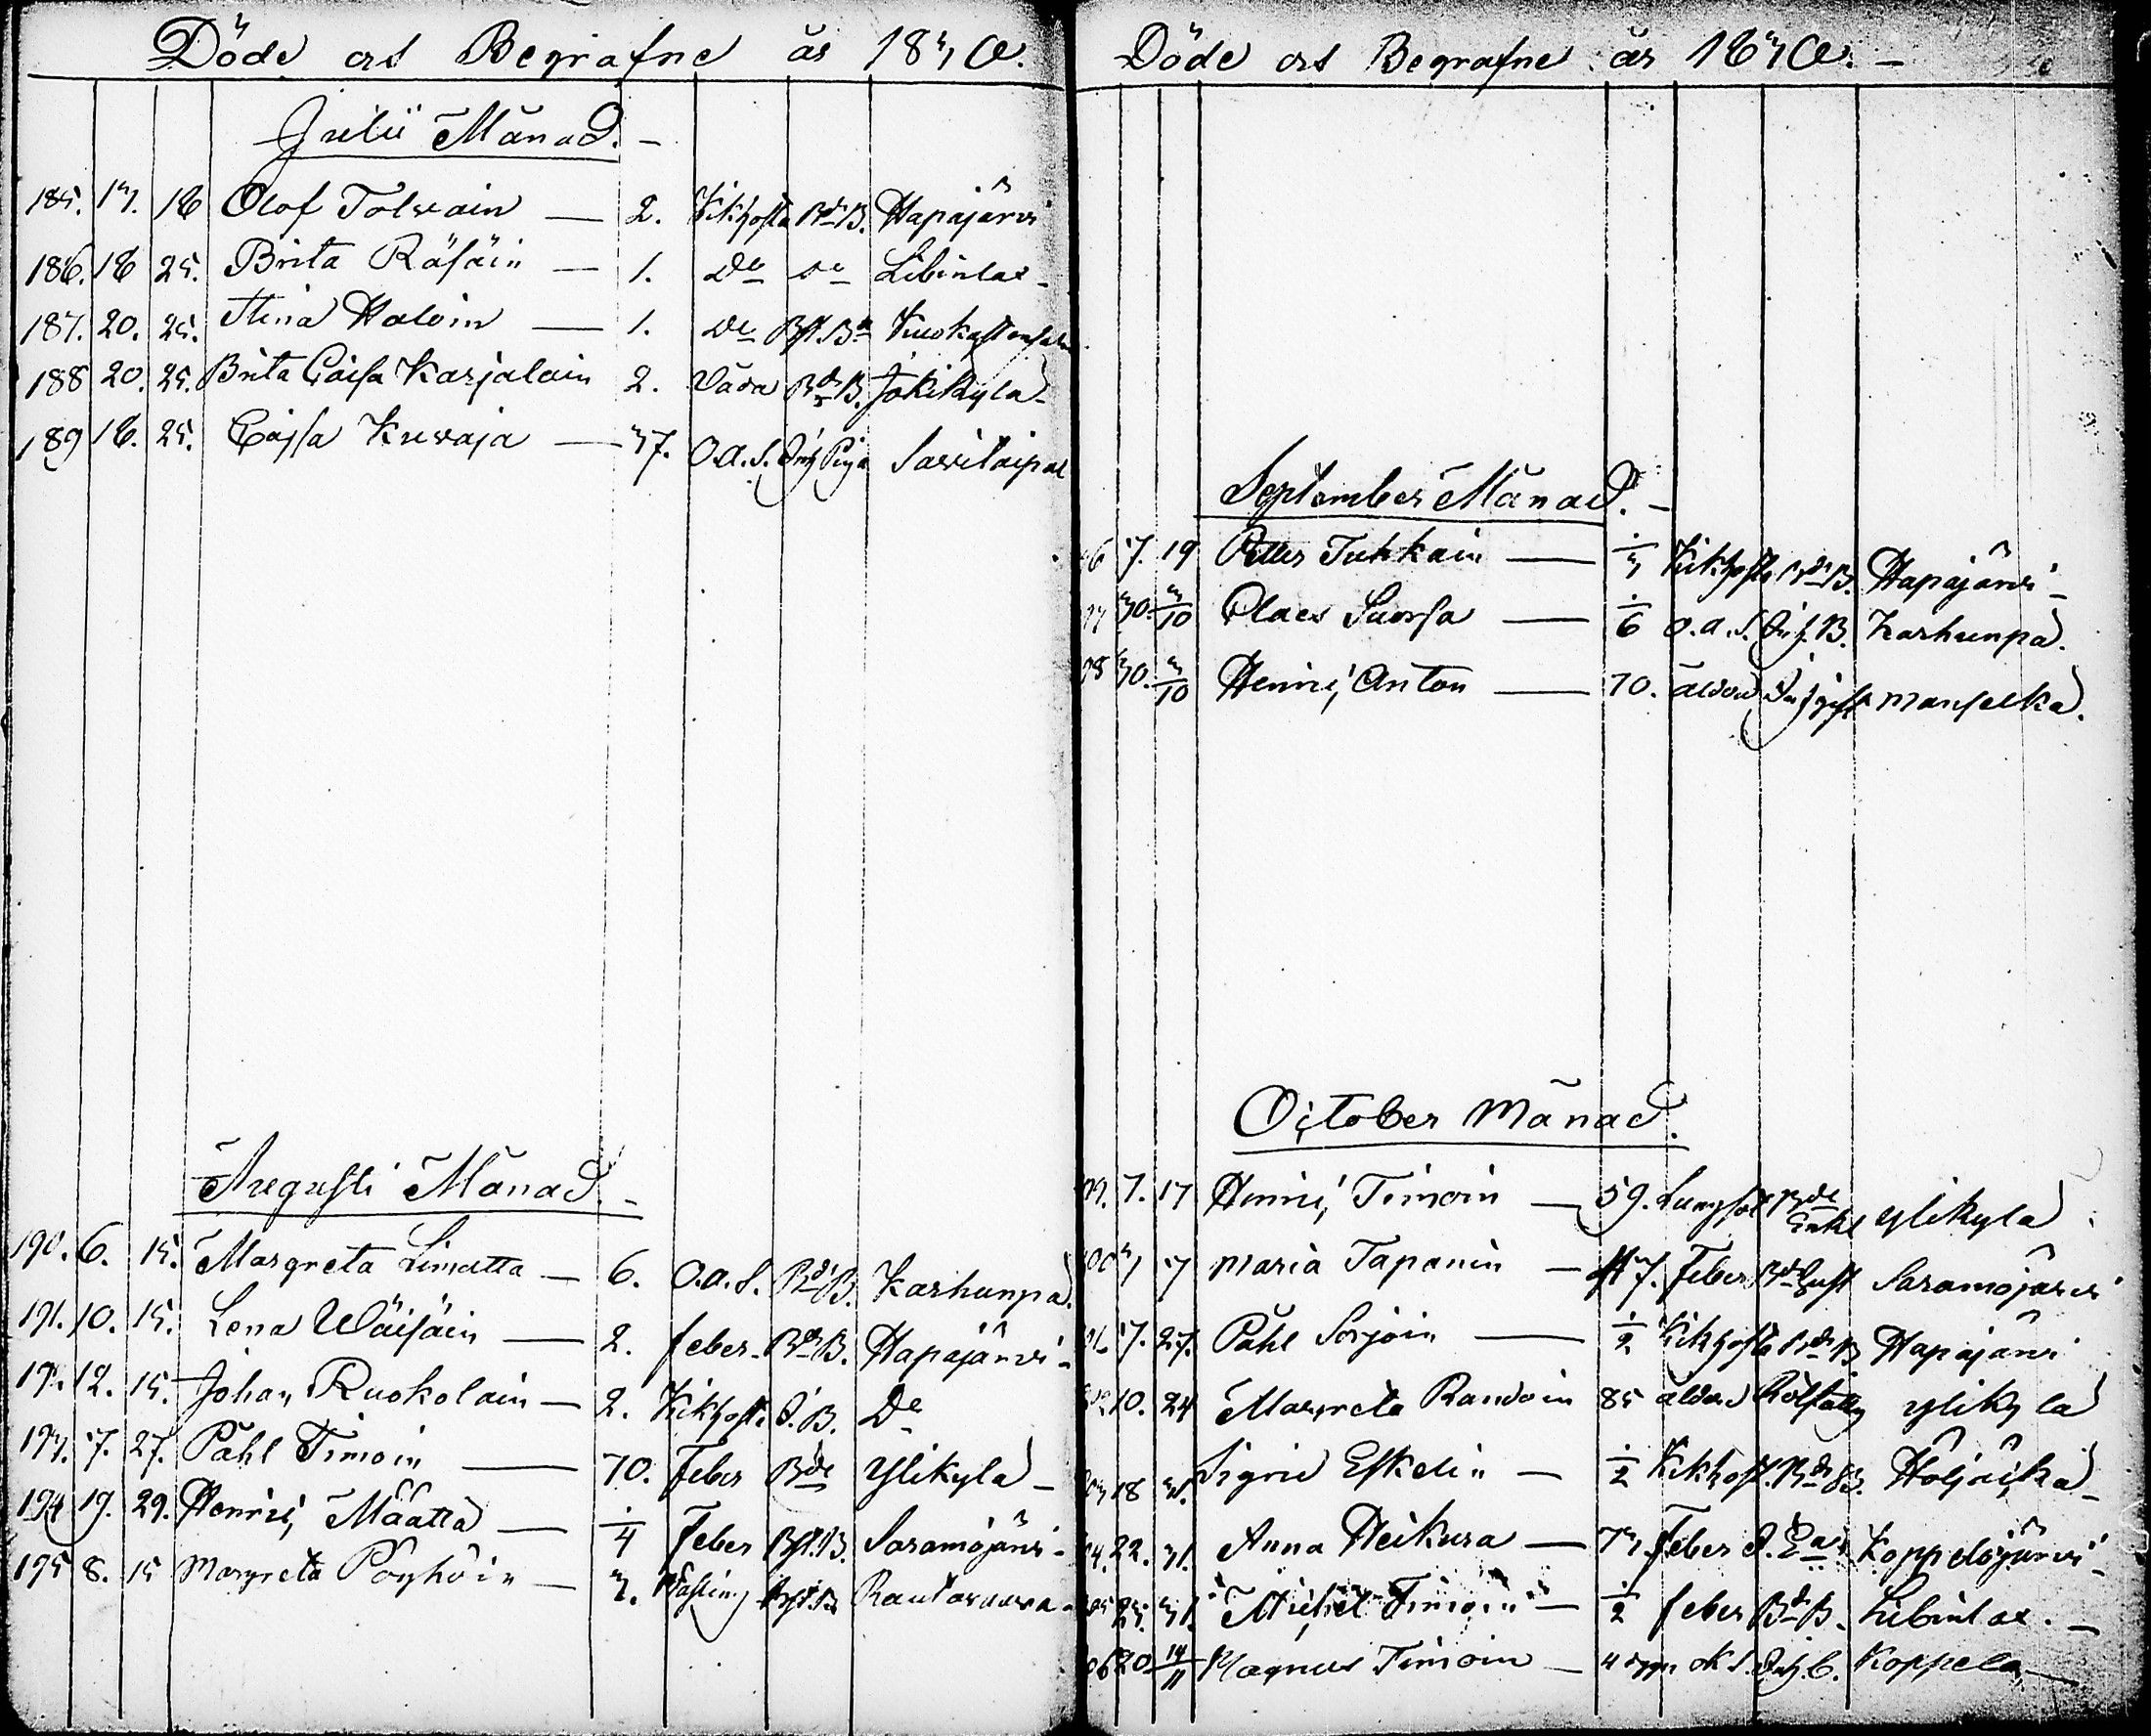 Döde och Begrafne år 1830.
Julii Månad. -
185. 17. 18 Olof Tolvain — 2. Kikhosta Bde B. Hapajärvi
186. 18 25. Brita Räsäin — 1. Do Do Libinlax -
187. 20. 25. Stina Haloin — 1. Do
188 20. 25. Brita Caisa Karjalain 2. Våda Bde B. Jokikylä -
189 18. 25. Caisa Kuvaja — 37. O.a.S. Inh Piga Savilaipal
Augusti Månad. -
190. 6. 15. Margreta Limatta — 6. O.a.S. Bde B. Karhunpä.
191. 10. 15. Lena Wäisäin — 2. feber. Bde B. Hapajärvi -
192. 12. 15. Johan Ruokolain — 2. Kikhosta I. B. Do
193. 7. 27. Påhl Timoin — 70. Feber Bde Ylikylä -
194 19. 29. Henric Määttä — 1/4 Feber Bst. B. Saramojärvi -
195 8. 15 Margreta Pöyhöin — 3. Bst. B. Rautavaara -
Döde och Begrafne år 1830. -
September Månad. -
96 7. 19 Petter Tuhkain — 1/3 Kikhosta Bde B. Hapajärvi -
97 30. 3/10 Claes Suorsa — 1/6 O.a.S. Inh. B. Karhunpä.
98 30. 3/10 Henric Anton — 70. ålder Inh gift Manselkä.
October Månad.
99. 7. 17 Henric Timoin — 59. Lungsot Bde Enkl Ylikylä
00 3 17 Maria Tapanin — 47. Feber Bde Hust Saramojärvi
01 7. 27. Påhl Sorjoin — 1/2 Kikhosta Bde B Hapajärvi
02 10. 24 Margreta Randoin 85 ålder Rotfattig Ylikylä
03 18 31. Sigrid Eskelin — 1/2 Kikhost. Bde B. Höljäckä -
04. 22. 31. Anna Heikura — 73 Feber I. Eas Koppelojärvi -
205 25. 31. Michel Timoin — 1/2 feber Bde B. Libinlax. -
06 20 14/11 Magnus Timoin — 4 dygn ok S. Inh. B. Koppelo —